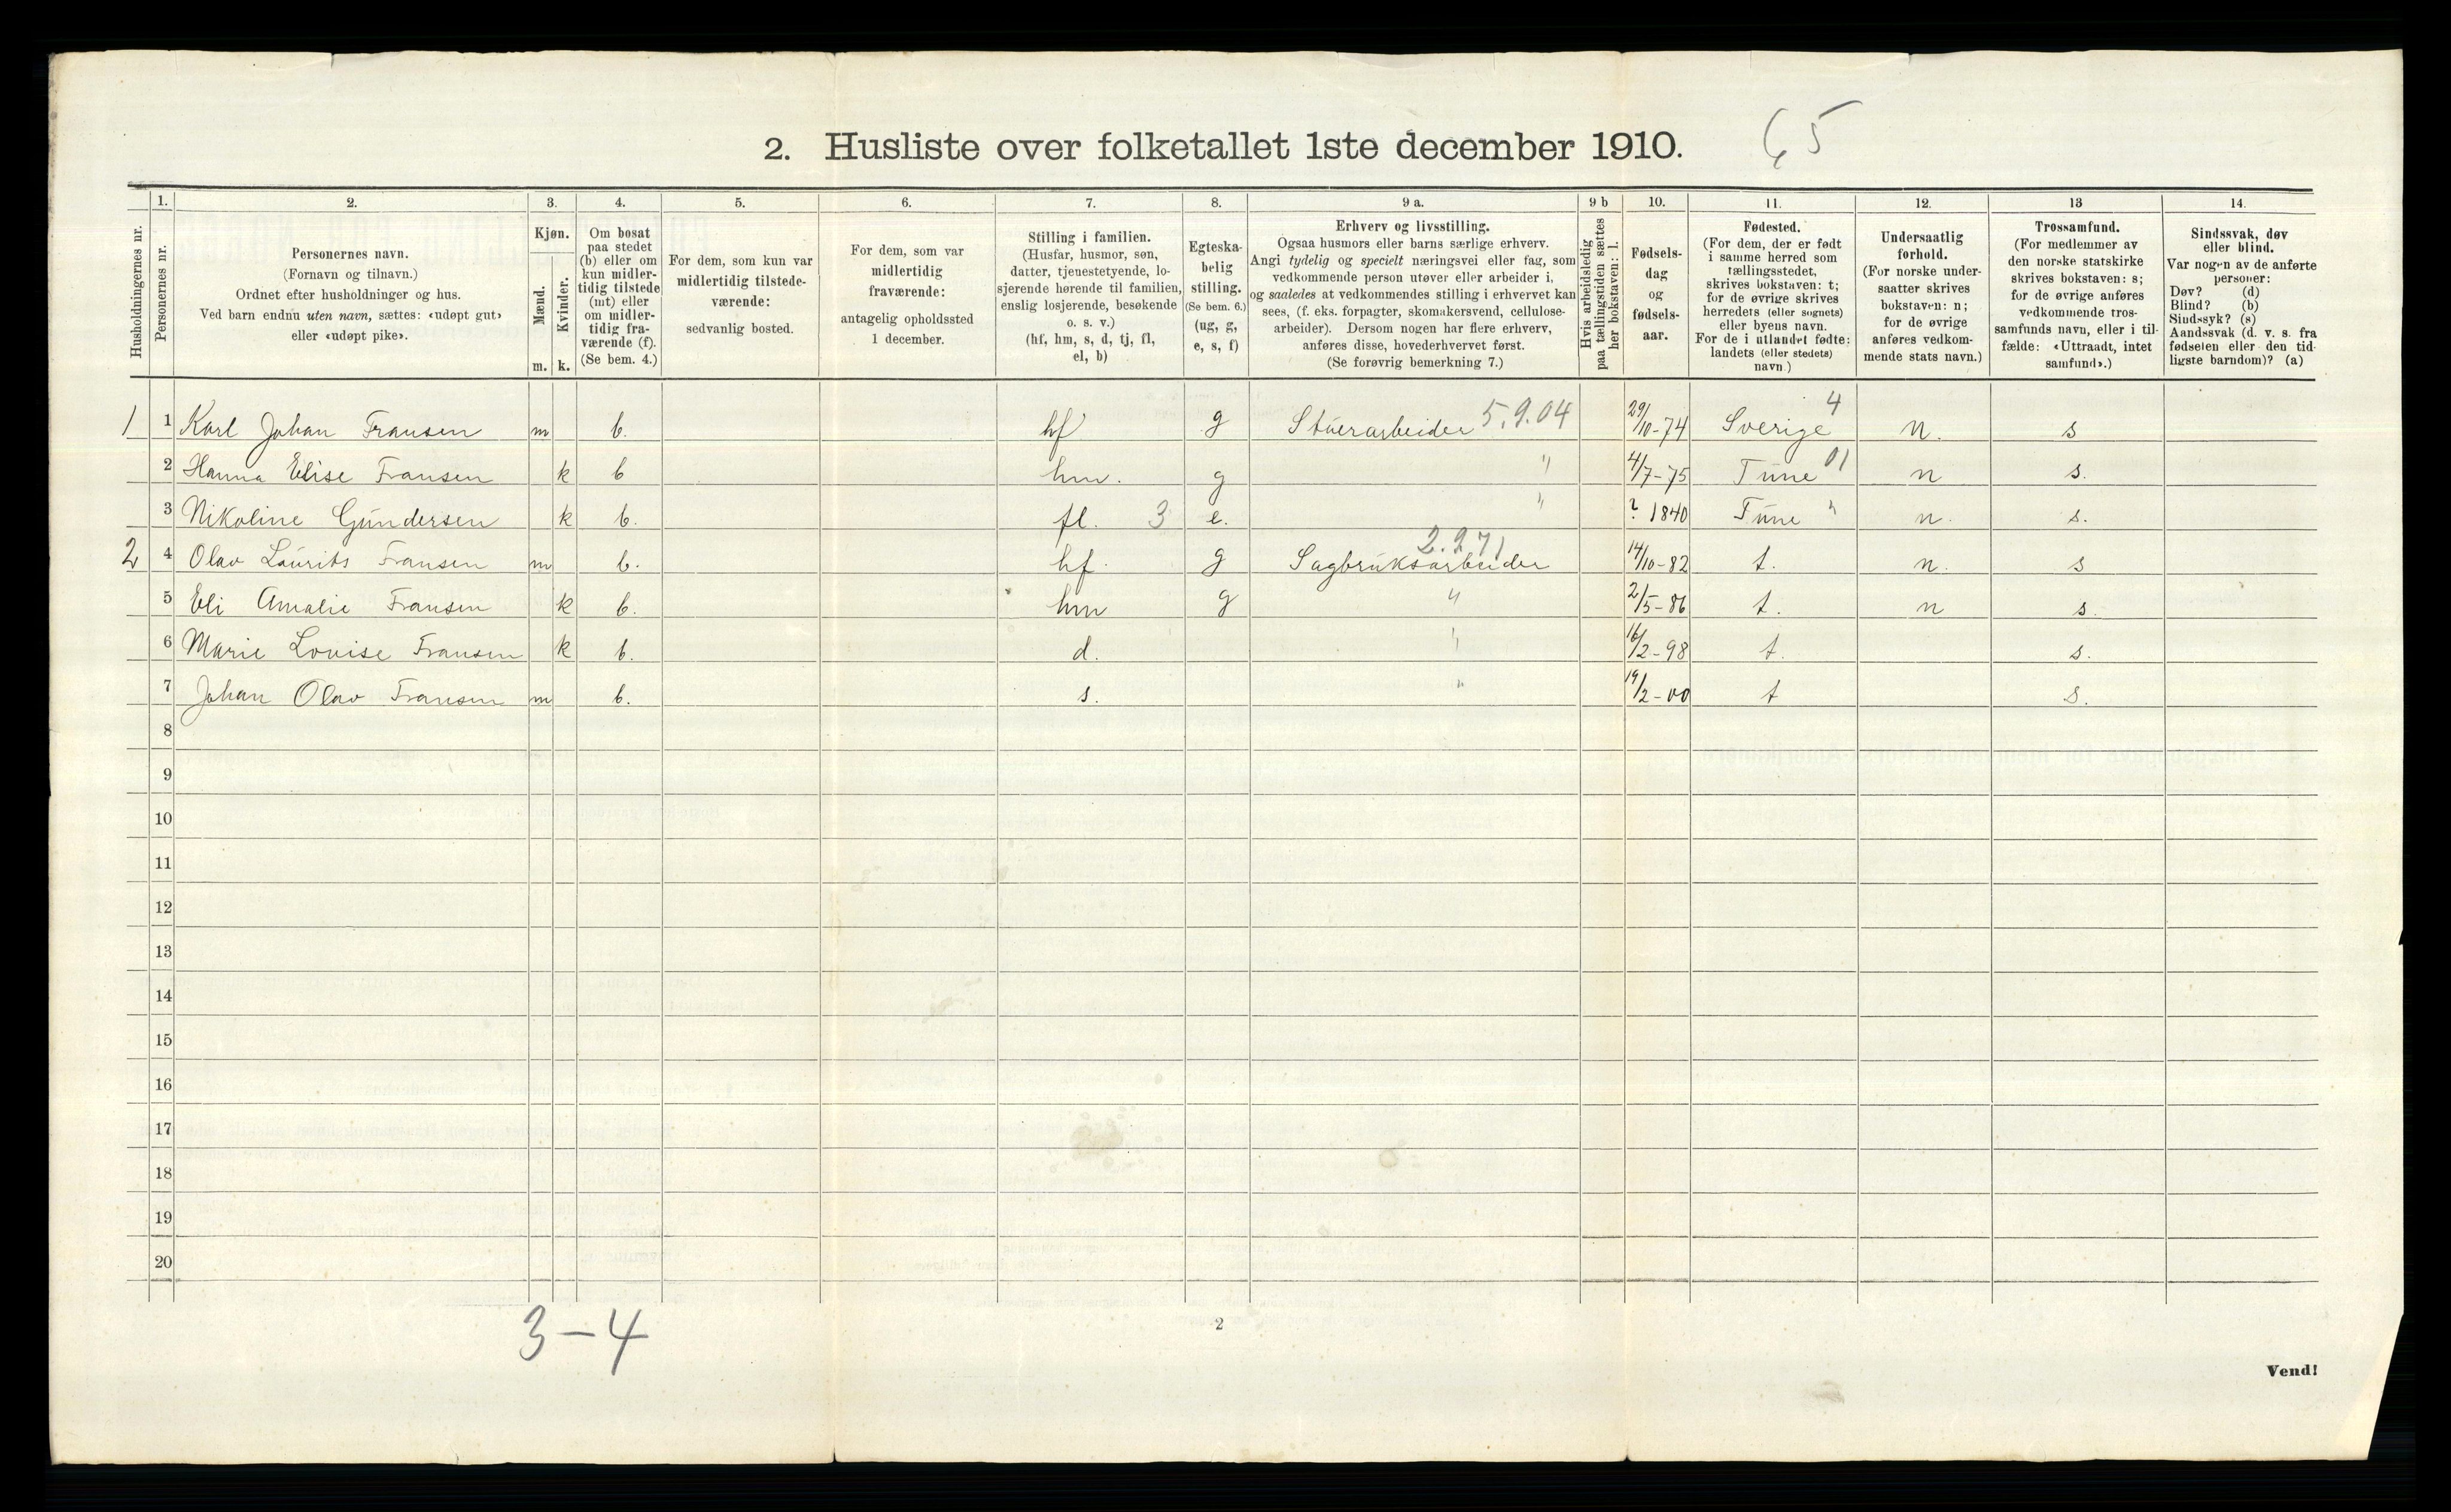 65
2. Husliste over folketallet 1ste december 1910.
Husholdningernes nr.
1. Personernes nr.
2. Personernes navn. (Fornavn og tilnavn.) Ordnet efter husholdninger og hus. Ved barn endnu uten navn, sættes: «udøpt gut» eller «udøpt pike».
3. Kjøn. Mænd. m. Kvinder. k.
4. Om bosat paa stedet (b) eller om kun midlertidig tilstede (mt) eller om midlertidig fraværende (f). (Se bem. 4.)
5. For dem, som kun var midlertidig tilstedeværende: sedvanlig bosted.
6. For dem, som var midlertidig fraværende: antagelig opholdssted 1 december.
7. Stilling i familien. (Husfar, husmor, søn, datter, tjenestetyende, losjerende hørende til familien, enslig losjerende, besøkende o. s. v.) (hf, hm, s, d, tj, fl, el, b)
8. Egteskabelig stilling. (Se bem. 6.) (ug, g, e, s, f)
9 a. Erhverv og livsstilling. Ogsaa husmors eller barns særlige erhverv. Angi tydelig og specielt næringsvei eller fag, som vedkommende person utøver eller arbeider i, og saaledes at vedkommendes stilling i erhvervet kan sees, (f. eks. forpagter, skomakersvend, cellulosearbeider). Dersom nogen har flere erhverv, anføres disse, hovederhvervet først. (Se forøvrig bemerkning 7.)
9 b Hvis arbeidsledig paa tællingstiden sættes her bokstaven: l.
10. Fødselsdag og fødselsaar.
11. Fødested. (For dem, der er født i samme herred som tællingsstedet, skrives bokstaven: t; for de øvrige skrives herredets (eller sognets) eller byens navn. For de i utlandet fødte: landets (eller stedets) navn.)
12. Undersaatlig forhold. (For norske undersaatter skrives bokstaven: n; for de øvrige anføres vedkommende stats navn.)
13 Trossamfund. (For medlemmer av den norske statskirke skrives bokstaven: s; for de øvrige anføres vedkommende trossamfunds navn, eller i tilfælde: «Uttraadt, intet samfund».)
14. Sindssvak, døv eller blind. Var nogen av de anførte personer: Døv? (d) Blind? (b) Sindssyk? (s) Aandssvak (d. v. s. fra fødselen eller den tidligste barndom)? (a)
1 1 Karl Johan Fransen m b. hf g Stuerarbeider 5.9.04 29/10-74 Sverige 4 n. s
2 Hanna Elise Fransen k b hm. g " 4/7-75 Tune 01 n s.
3 Nikoline Gundersen k b. fl. 3 e. " ? 1840 Tune " n. s.
2 4 Olav Laurits Fransen m b. hf. g Sagbruksarbeider 2.271 14/10-82 t. n. s
5 Eli Amalie Fransen k b. hm g " 2/5-86 t. n s.
6 Marie Lovise Fransen k b. d. " 16/2-98 t. s.
7 Johan Olav Fransen m b. s. " 19/2-00 t s.
8
9
10
11
12
13
14
15
16
17
18
19
20
3-4
2
Vend!